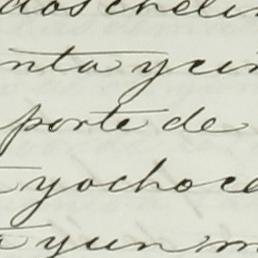 dos chelin
nta y cin
porte de
y ocho ce
y un m